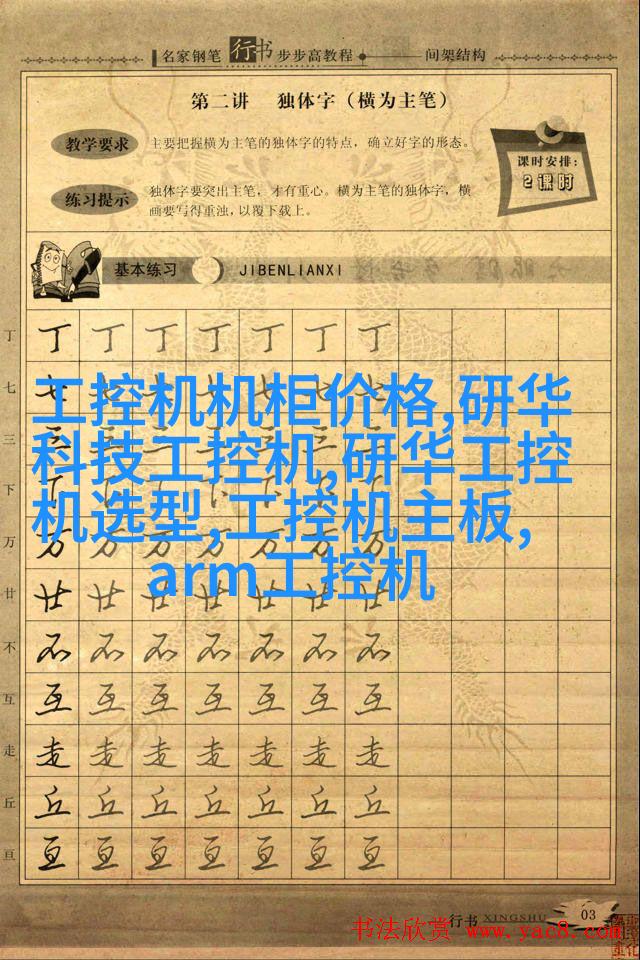 名家钢笔 行书 步步高教程 间架结构
第二讲 独体字（横为主笔）
教学要求 主要把握横为主笔的独体字的特点，确立好字的形态。
课时安排:
2课时
练习提示 独体字要突出主笔，才有重心。横为主笔的独体字，横
画要写得重浊，以覆下载上。
基本练习 JIBENLIANXI
丁 丁 丁 丁 丁 丁 丁 丁
七 七 七 七 七 七 七 七
工控机机柜价格,研华
三 三 三 三 三 三 三 三
科技工控机,研华工控
下 下 下 下 下 下 下 下
机选型,工控机主板,
万 万 万 万 万 万 万 万
arm工控机
廿 廿 廿 廿 廿 廿 廿 廿
不 不 不 不 不 不 不 不
互 互 互 互 互 互 互 互
走 走 走 走 走 走 走 走
丘 丘 丘 丘 丘 丘 丘 丘
亘 亘 亘 亘 亘 亘 亘 亘
行书 XINGSHU 03
书法欣赏 www.yac8.com